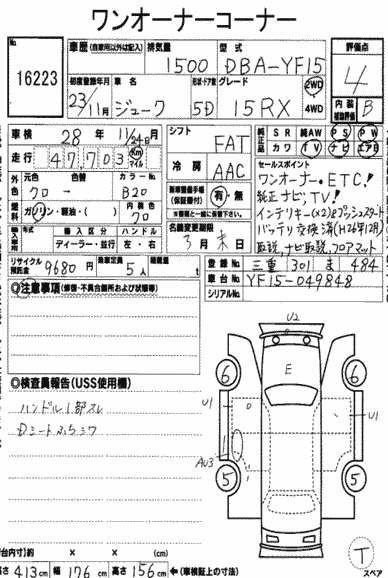 ワンオーナーコーナー
No.
16223
車歴 (自家用以外は記入)
排気量
型式
1500
DBA-YF15
評価点
4
初度登録年月
車名
形状・ドア数
グレード
23/11月
ジューク
5D
15RX
2WD
4WD
内装
補助評価
B
車検
28年 11/24日
シフト
FAT
純正品
SR 純AW PS PW
カワ TV ナビ エアB
走行
47,703
Km
マイル
冷房
AAC
セールスポイント
ワンオーナー・ETC!
純正ナビ,TV!
インテリキー(×2)&プッシュスタート
バッテリ交換済(H26年12月)
取説,ナビ取説,フロアマット
外色
元色
色替
カラーNo.
クロ → B20
新車整備手帳
(保証書付)
有・無
※書類と一緒に保管下さい
燃料
ガソリン・軽油・( )
内装色
クロ
名義変更期限
3月末日
輸入車
年式
輸入区分
ハンドル
ディーラー・並行
左・右
リサイクル
預託金
9680円
乗車定員
5人
積載量
t
登録No.
三重 301 ま 484
車台No.
YF15-049848
シリアルNo.
◎注意事項 (修復・不具合箇所および状態等)
◎検査員報告 (USS使用欄)
ハンドル1部スレ
Dシートふちシワ
U2
E
6
6
U1
U1
AU3
5
5
T
スペア
荷台内寸)約 × × (cm)
長さ 413cm 幅 176cm 高さ 156cm ←(車検証上の寸法)